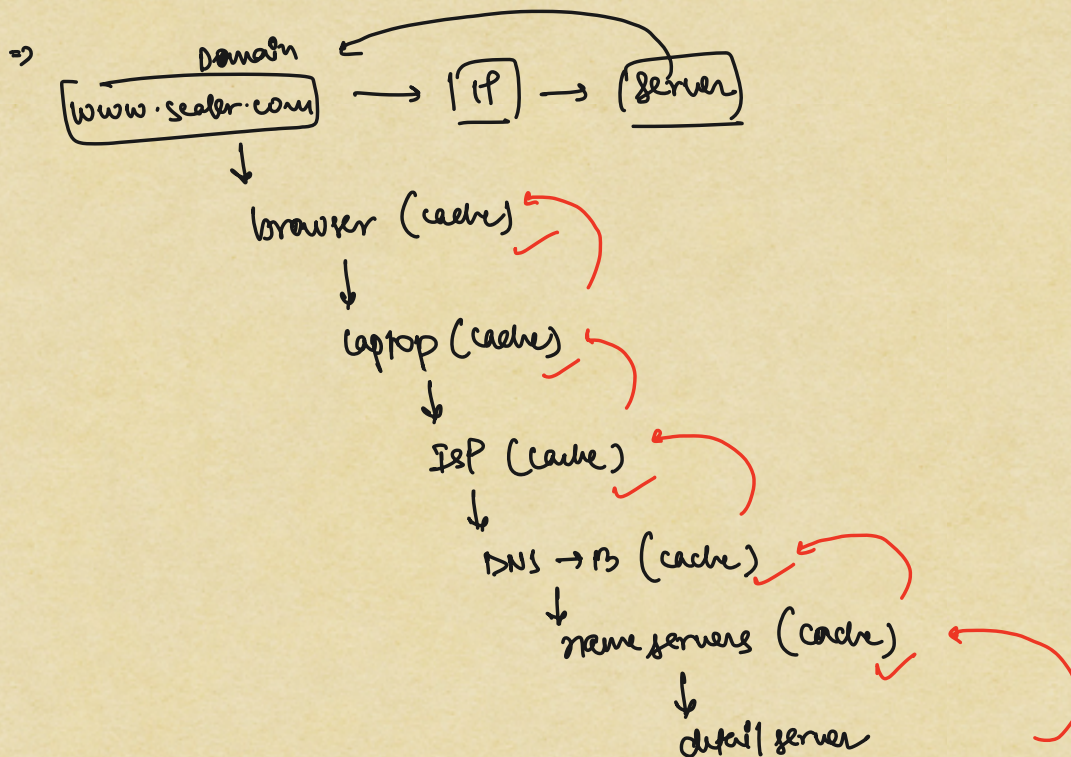 => Domain
www.scaler.com → IP → Server
browser (cache)
laptop (cache)
ISP (cache)
DNS → 13 (cache)
name servers (cache)
detail server